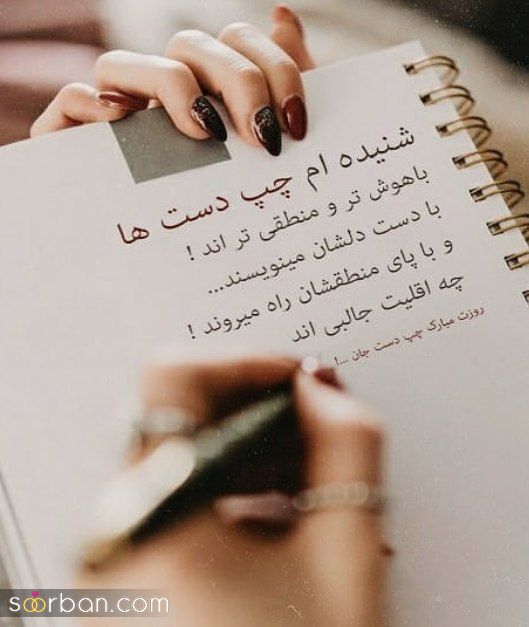 شنیده ام چپ دست ها
باهوش تر و منطقی تر اند !
با دست دلشان مینویسند...
و با پای منطقشان راه میروند !
چه اقلیت جالبی اند
روزت مبارک چپ دست جان ...!
soorban.com